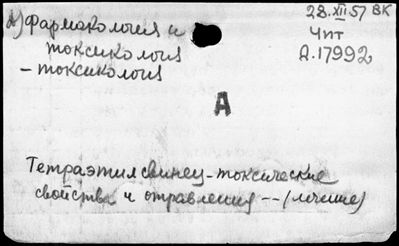 А) Фармакология и
токсикология
- токсикология
28.XII 57 ВК
Чит
Д.17992
А
Тетраэтилсвинец - токсические
свойства и отравления -- (лечение)